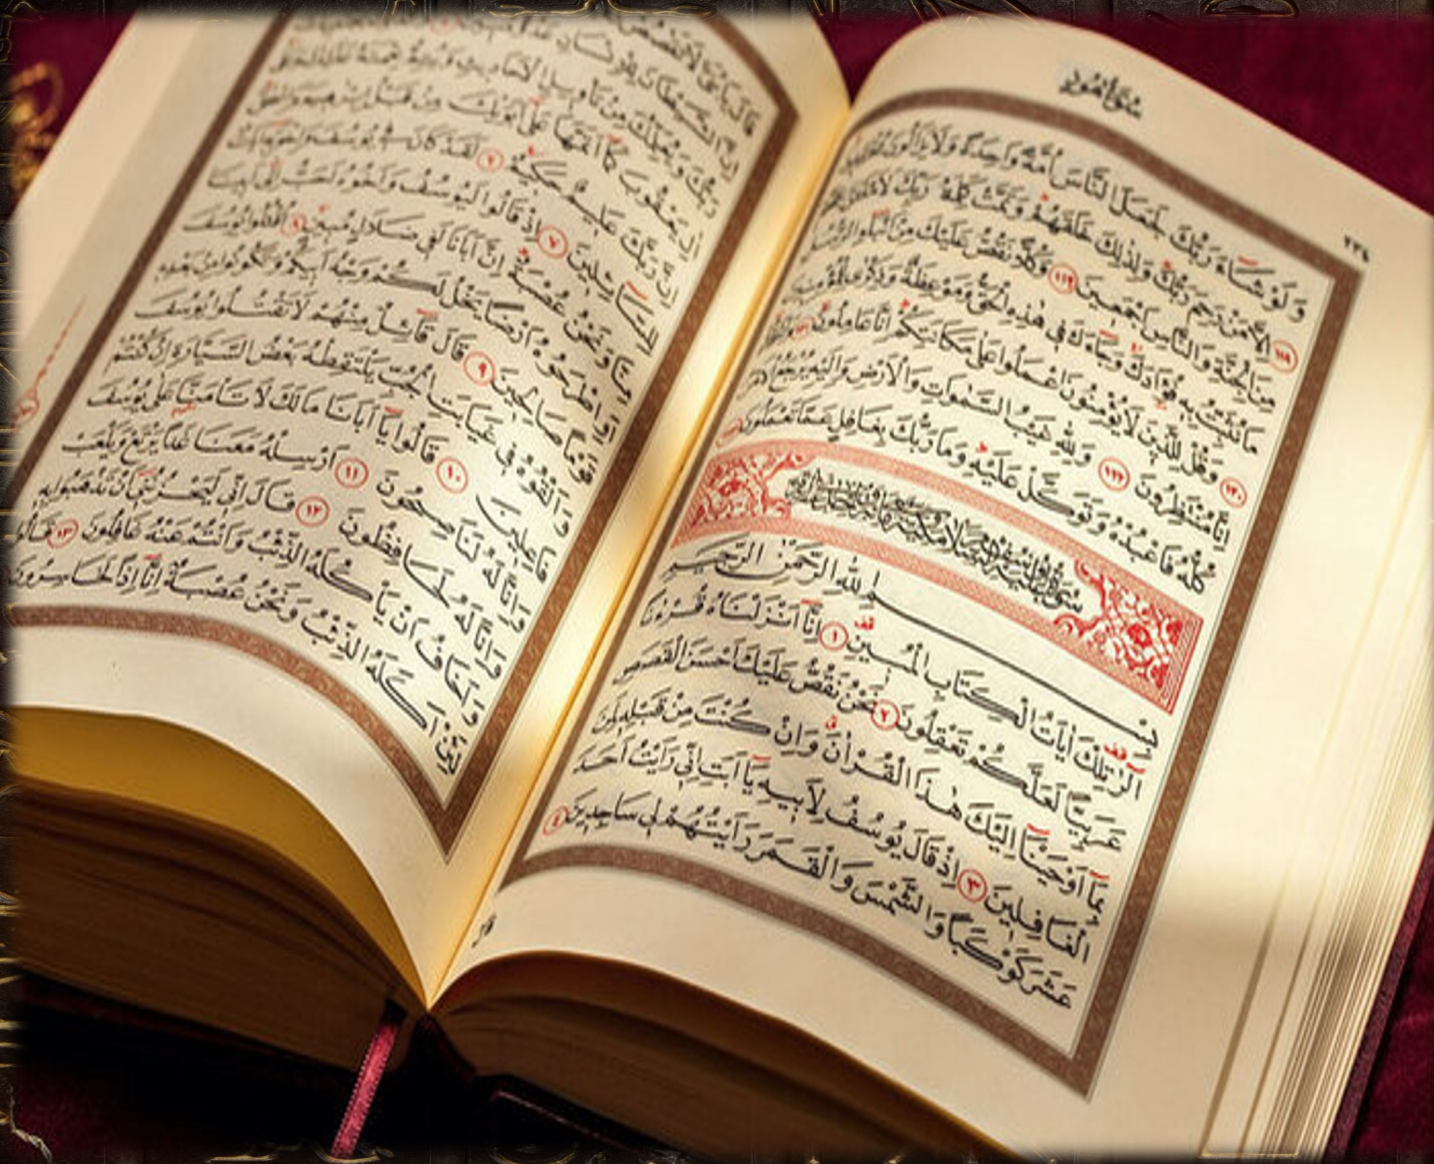 سُورَةُ هُودٍ
٢٣٤
وَلَوْ شَاءَ رَبُّكَ لَجَعَلَ النَّاسَ اُمَّةً وَاحِدَةً وَلَا يَزَالُونَ مُخْتَلِفِينَ
١١٨ اِلَّا مَنْ رَحِمَ رَبُّكَ وَلِذٰلِكَ خَلَقَهُمْ وَتَمَّتْ كَلِمَةُ رَبِّكَ لَاَمْلَـَٔنَّ
مِنَ الْجِنَّةِ وَالنَّاسِ اَجْمَعِينَ ١١٩ وَكُلًّا نَقُصُّ عَلَيْكَ مِنْ اَنْبَاءِ الرُّسُلِ
مَا نُثَبِّتُ بِهِ فُؤَادَكَ وَجَاءَكَ فِي هٰذِهِ الْحَقُّ وَمَوْعِظَةٌ وَذِكْرٰى لِلْمُؤْمِنِينَ
١٢٠ وَقُلْ لِلَّذِينَ لَا يُؤْمِنُونَ اعْمَلُوا عَلٰى مَكَانَتِكُمْ اِنَّا عَامِلُونَ ١٢١
اِنَّا مُنْتَظِرُونَ ١٢٢ وَلِلّٰهِ غَيْبُ السَّمٰوَاتِ وَالْاَرْضِ وَاِلَيْهِ يُرْجَعُ الْاَمْرُ
كُلُّهُ فَاعْبُدْهُ وَتَوَكَّلْ عَلَيْهِ وَمَا رَبُّكَ بِغَافِلٍ عَمَّا تَعْمَلُونَ
بِسْمِ اللّٰهِ الرَّحْمٰنِ الرَّحِيمِ
الٓرٰ تِلْكَ اٰيَاتُ الْكِتَابِ الْمُبِينِ ١ اِنَّا اَنْزَلْنَاهُ قُرْءٰنًا
عَرَبِيًّا لَعَلَّكُمْ تَعْقِلُونَ ٢ نَحْنُ نَقُصُّ عَلَيْكَ اَحْسَنَ الْقَصَصِ
بِمَا اَوْحَيْنَا اِلَيْكَ هٰذَا الْقُرْاٰنَ وَاِنْ كُنْتَ مِنْ قَبْلِهِ لَمِنَ
الْغَافِلِينَ ٣ اِذْ قَالَ يُوسُفُ لِاَبِيهِ يَا اَبَتِ اِنِّي رَاَيْتُ اَحَدَ
عَشَرَ كَوْكَبًا وَالشَّمْسَ وَالْقَمَرَ رَاَيْتُهُمْ لِي سَاجِدِينَ ٤
قَالَ
رَبُّكَ وَيُعَلِّمُكَ مِنْ تَأْوِيلِ الْاَحَادِيثِ وَيُتِمُّ نِعْمَتَهُ
يَعْقُوبَ كَمَا اَتَمَّهَا عَلٰى اَبَوَيْكَ مِنْ قَبْلُ
اِنَّ رَبَّكَ عَلِيمٌ حَكِيمٌ ٦ لَقَدْ كَانَ فِي يُوسُفَ وَاِخْوَتِهِ اٰيَاتٌ
لِلسَّائِلِينَ ٧ اِذْ قَالُوا لَيُوسُفُ وَاَخُوهُ اَحَبُّ اِلٰى اَبِينَا
مِنَّا وَنَحْنُ عُصْبَةٌ اِنَّ اَبَانَا لَفِي ضَلَالٍ مُبِينٍ ٨ اُقْتُلُوا يُوسُفَ
اَوِ اطْرَحُوهُ اَرْضًا يَخْلُ لَكُمْ وَجْهُ اَبِيكُمْ وَتَكُونُوا مِنْ بَعْدِهِ
قَوْمًا صَالِحِينَ ٩ قَالَ قَائِلٌ مِنْهُمْ لَا تَقْتُلُوا يُوسُفَ
وَاَلْقُوهُ فِي غَيَابَتِ الْجُبِّ يَلْتَقِطْهُ بَعْضُ السَّيَّارَةِ اِنْ كُنْتُمْ
فَاعِلِينَ ١٠ قَالُوا يَا اَبَانَا مَا لَكَ لَا تَأْمَنَّا عَلٰى يُوسُفَ
وَاِنَّا لَهُ لَنَاصِحُونَ ١١ اَرْسِلْهُ مَعَنَا غَدًا يَرْتَعْ وَيَلْعَبْ
وَاِنَّا لَهُ لَحَافِظُونَ ١٢ قَالَ اِنِّي لَيَحْزُنُنِي اَنْ تَذْهَبُوا بِهِ
وَاَخَافُ اَنْ يَأْكُلَهُ الذِّئْبُ وَاَنْتُمْ عَنْهُ غَافِلُونَ ١٣ قَالُوا
لَئِنْ اَكَلَهُ الذِّئْبُ وَنَحْنُ عُصْبَةٌ اِنَّا اِذًا لَخَاسِرُونَ